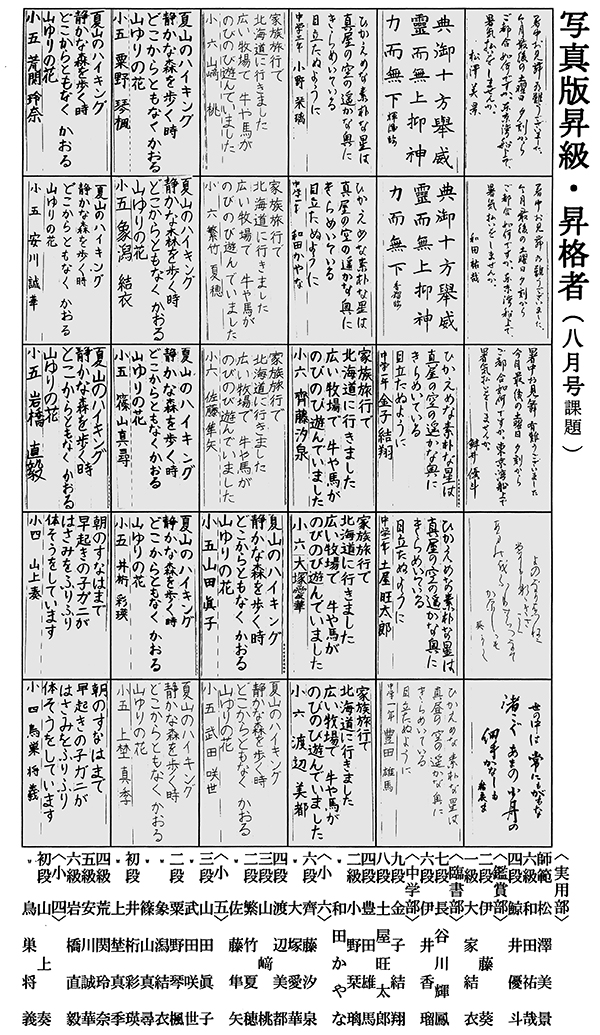 写真版昇級・昇格者（八月号課題）
力而無下
靈而無上抑神
典御十方擧威
ひかえめな素朴な星は
真昼の空の遥かな奥に
きらめいている
目立たぬように
中学三年 小野 栞璃
家族旅行で
北海道に行きました
広い牧場で 牛や馬が
のびのび遊んでいました
小六 山﨑 桃
夏山のハイキング
静かな森を歩く時
どこからともなく かおる
山ゆりの花
小五 粟野 琴楓
夏山のハイキング
静かな森を歩く時
どこからともなく かおる
山ゆりの花
小五 荒関 玲奈
典御十方擧威
靈而無上抑神
力而無下
ひかえめな素朴な星は
真昼の空の遥かな奥に
きらめいている
目立たぬように
中学一年 和田かやな
家族旅行で
北海道に行きました
広い牧場で 牛や馬が
のびのび遊んでいました
小六 繁竹 夏穂
夏山のハイキング
静かな森を歩く時
どこからともなく かおる
山ゆりの花
小五 象潟 結衣
夏山のハイキング
静かな森を歩く時
どこからともなく かおる
山ゆりの花
小五 安川 誠華
暑中お見舞 有難うございました
今月最後の土曜日 夕刻から
ご都合如何ですか。東京湾船上で、
暑気払いをしませんか。
鯨井優斗
ひかえめな素朴な星は
真昼の空の遥かな奥に
きらめいている
目立たぬように
中学一年 金子 結翔
家族旅行で
北海道に行きました
広い牧場で 牛や馬が
のびのび遊んでいました
小六 齊藤汐泉
家族旅行で
北海道に行きました
広い牧場で 牛や馬が
のびのび遊んでいました
小六 佐藤 隼矢
夏山のハイキング
静かな森を歩く時
どこからともなく かおる
山ゆりの花
小五 篠山真尋
夏山のハイキング
静かな森を歩く時
どこからともなく かおる
山ゆりの花
小五 岩橋 直毅
ひかえめな素朴な星は
真昼の空の遥かな奥に
きらめいている
目立たぬように
中学一年 土屋旺太郎
家族旅行で
北海道に行きました
広い牧場で 牛や馬が
のびのび遊んでいました
小六 大塚愛華
夏山のハイキング
静かな森を歩く時
どこからともなく かおる
山ゆりの花
小五 山田眞子
夏山のハイキング
静かな森を歩く時
どこからともなく かおる
山ゆりの花
小五 井桁 彩瑛
朝のすなはまで
早起きの子ガニが
はさみをふりふり
体そうをしています
小四 山上奏
世の中は 常にもがもな
渚こぐ あまの小舟の
綱手かなしも
ひかえめな素朴な星は
真昼の空の遥かな奥に
きらめいている
目立たぬように
中学一年 豊田 雄馬
家族旅行で
北海道に行きました
広い牧場で 牛や馬が
のびのび遊んでいました
小六 渡辺 美都
夏山のハイキング
静かな森を歩く時
どこからともなく かおる
山ゆりの花
小五 武田 咲世
夏山のハイキング
静かな森を歩く時
どこからともなく かおる
山ゆりの花
小五 上埜 真季
朝のすなはまで
早起きの子ガニが
はさみをふりふり
体そうをしています
小四 鳥巣 将義
〈実用部〉
師範 松澤美景
六級 和田祐哉
四段 鯨井優斗
〈鑑賞部〉
二段 伊藤葵
一級 大家結衣
〈臨書部〉
七段 長谷川輝鳳
六段 伊井香瑠
〈中学部〉
九段 金子結翔
八段 土屋旺太郎
四段 豊田雄馬
二級 小野栞璃
〃 和田かやな
〈小六〉
六段 齊藤汐泉
〃 大塚愛華
四段 渡辺美都
三段 山﨑桃
二段 繁竹夏穂
〃 佐藤隼矢
〈小五〉
三段 山田眞子
〃 武田咲世
二段 粟野琴楓
〃 象潟結衣
〃 篠山真尋
初段 井桁彩瑛
〃 上埜真季
四級 荒関玲奈
五級 安川誠華
六級 岩橋直毅
〈小四〉
初段 山上奏
〃 鳥巣将義